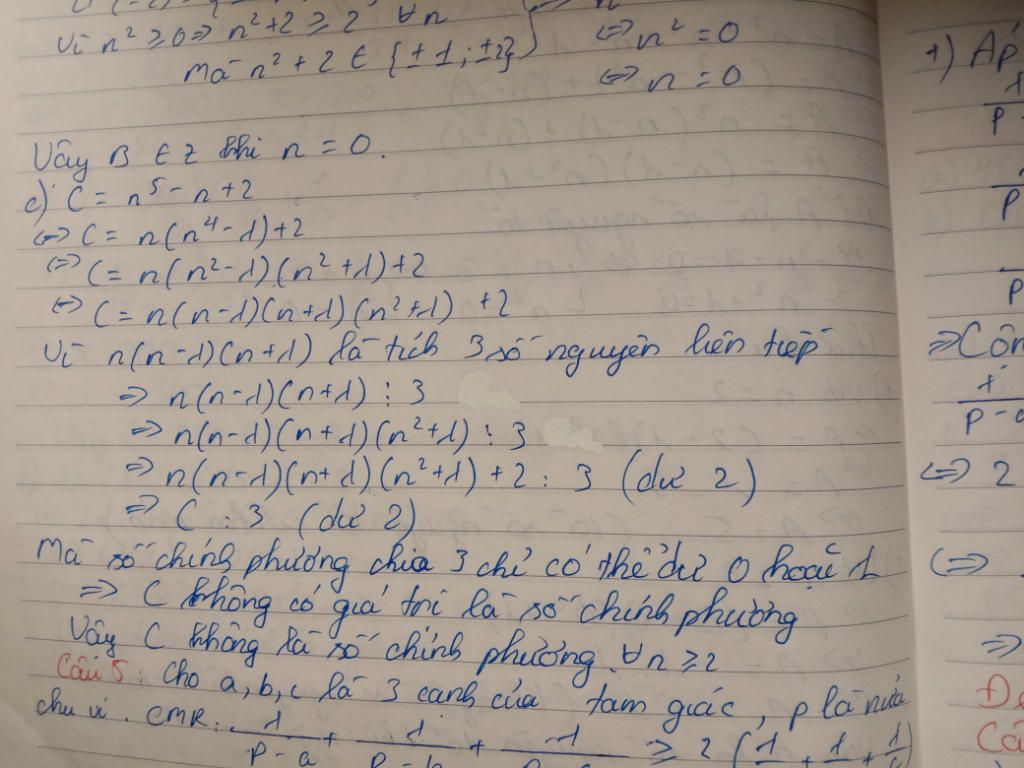 Vì n² ≥ 0 ⇒ n² + 2 ≥ 2 ∀n
Mà n² + 2 ∈ {±1; ±2}
⇔ n² = 0
⇔ n = 0
Vậy B ∈ Z khi n = 0.
c) C = n⁵ - n + 2
⇔ C = n(n⁴ - 1) + 2
⇔ C = n(n² - 1)(n² + 1) + 2
⇔ C = n(n - 1)(n + 1)(n² + 1) + 2
Vì n(n - 1)(n + 1) là tích 3 số nguyên liên tiếp
⇒ n(n - 1)(n + 1) ⋮ 3
⇒ n(n - 1)(n + 1)(n² + 1) ⋮ 3
⇒ n(n - 1)(n + 1)(n² + 1) + 2 : 3 (dư 2)
⇒ C : 3 (dư 2)
Mà số chính phương chia 3 chỉ có thể dư 0 hoặc 1
⇒ C không có giá trị là số chính phương
Vậy C không là số chính phương. ∀n ≥ 2
Câu 5: Cho a, b, c là 3 cạnh của tam giác, p là nửa
chu vi. CMR: 1/(p - a) + 1/(p - b) + 1/ ≥ 2 (1/ + 1/ + 1/
+) Áp
1
p -
p
p
⇒ Côn
1
p - a
⇔ 2
⇔
⇒
Câ